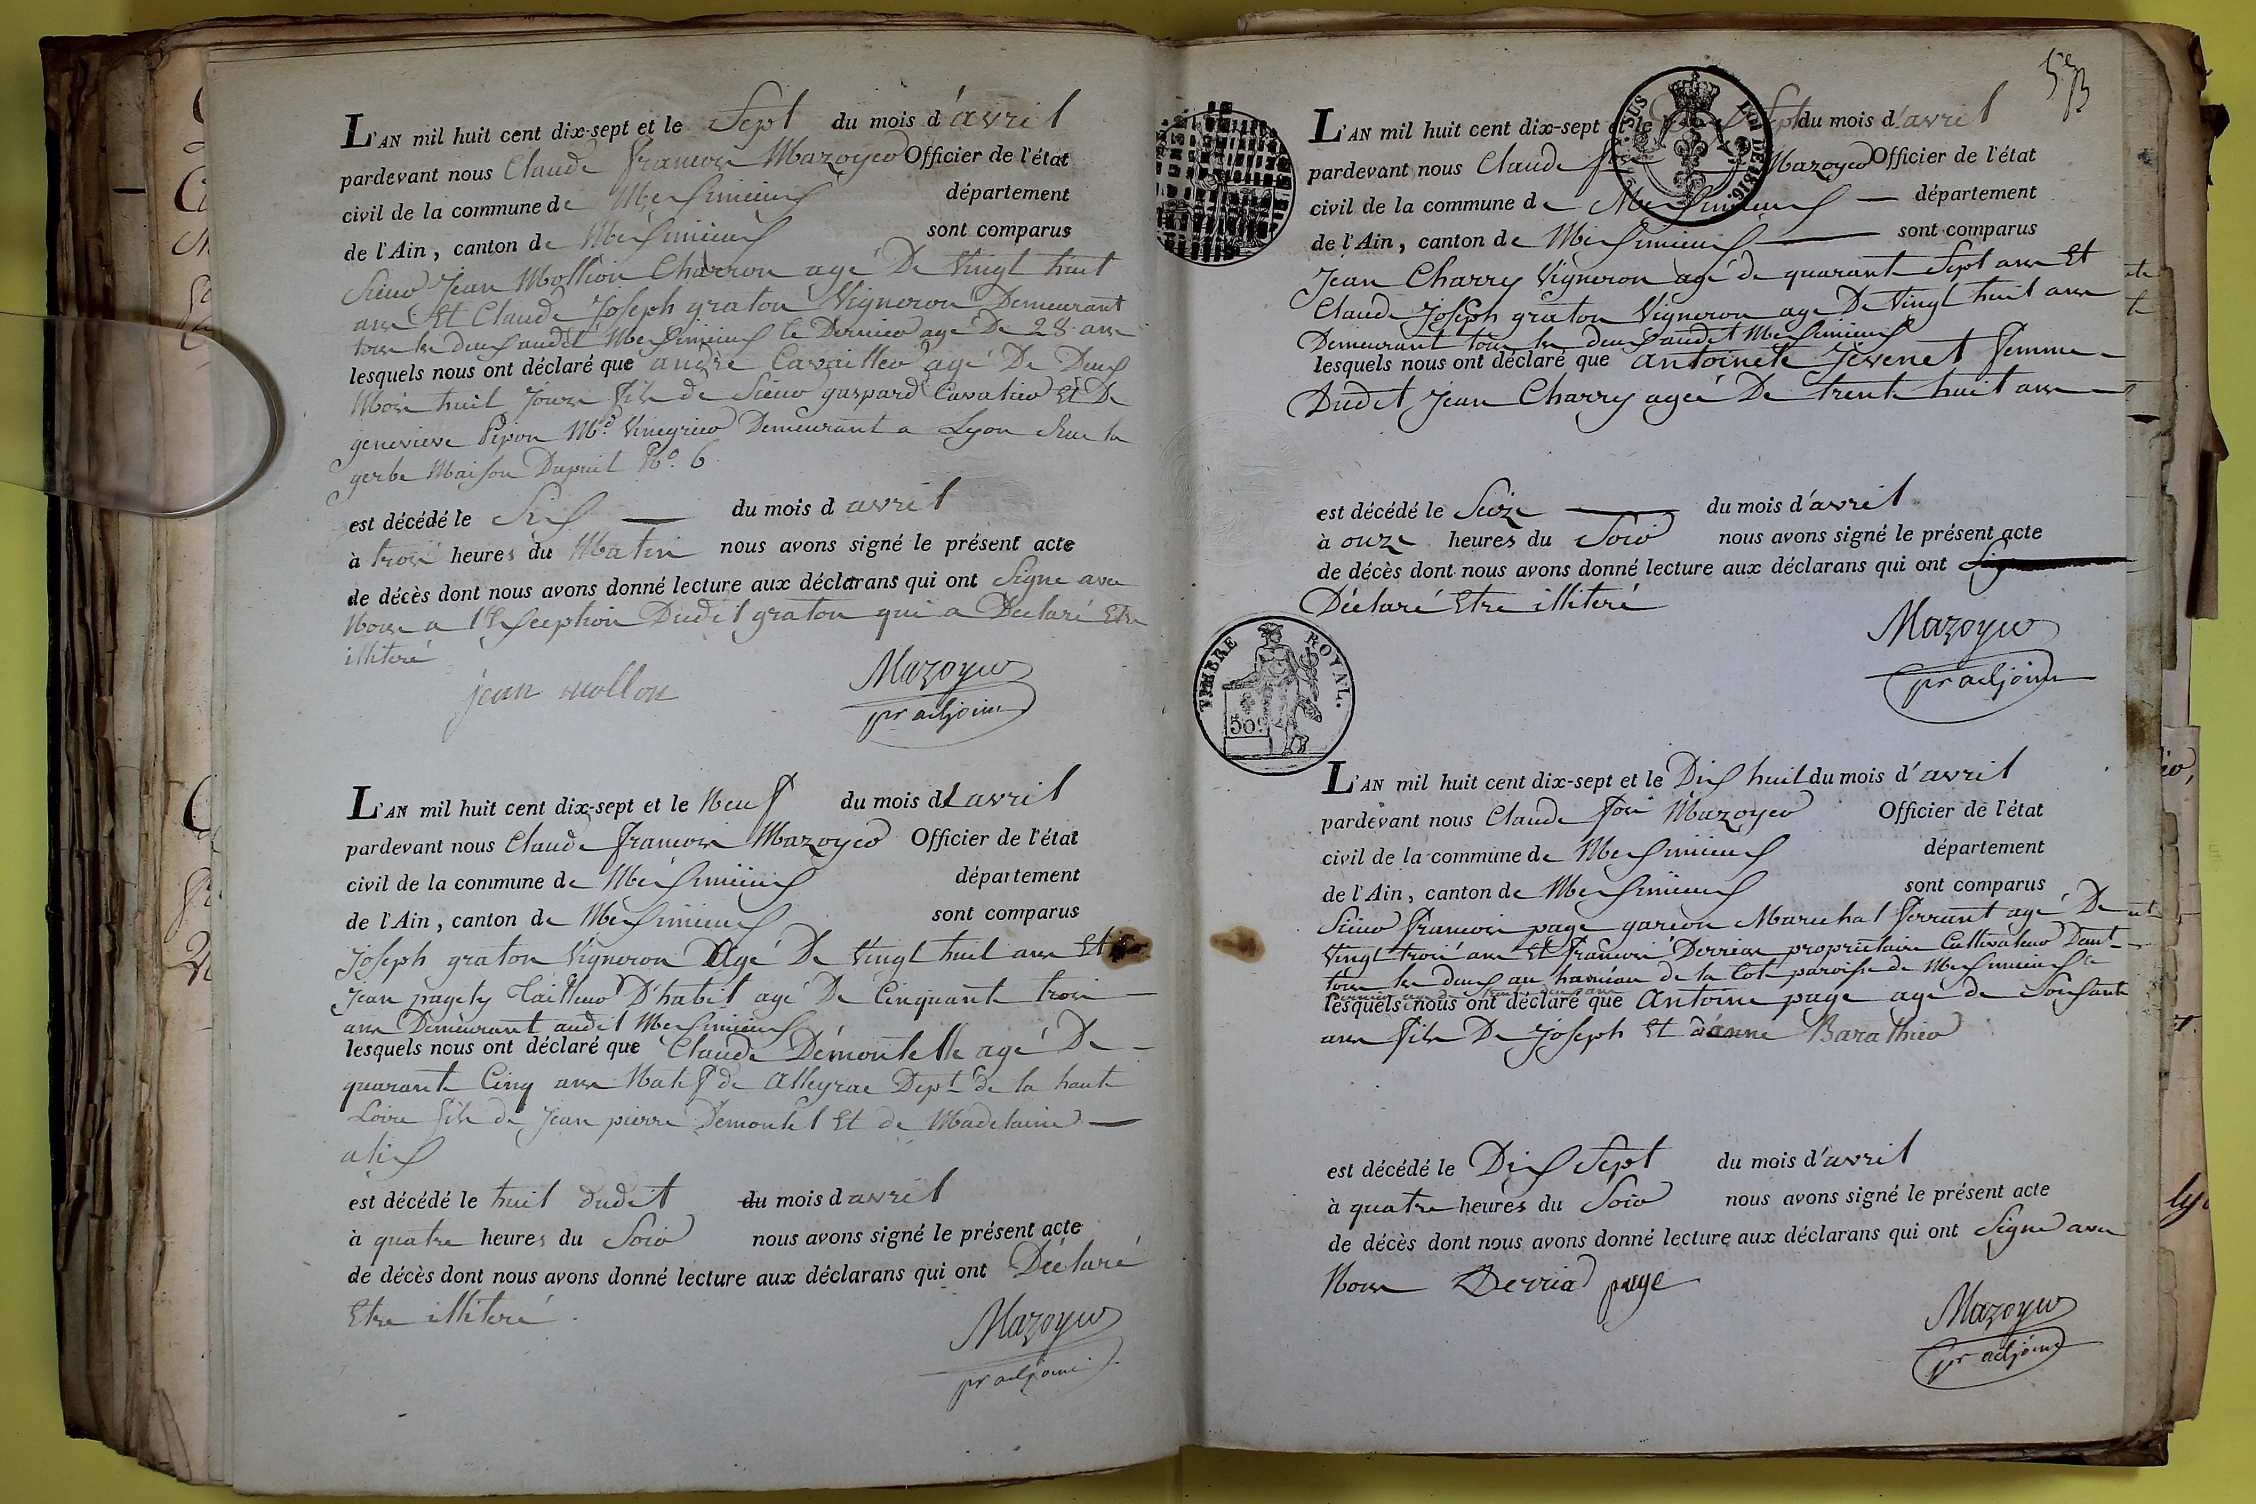 L'AN mil huit cent dix-sept et le Sept du mois d'avril
pardevant nous Claude francois Mazoyer Officier de l'état
civil de la commune de Meximieux département
de l'Ain, canton de Meximieux sont comparus
Sieur Jean Mollion Charron agé De Vingt huit
ans Et Claude Joseph graton Vigneron Demeurant
tous les deux audit Meximieux le Dernier agé De 28 ans
lesquels nous ont déclaré que andré Cavallier agé De Deux
Mois huit Jours fils de Sieur gaspard Cavalier Et De
genevieve Pepon Md. Vinegrier Demeurant a Lyon Rue la
gerbe Maison Dupuit No. 6
est décédé le Six du mois d avril
à trois heures du Matin nous avons signé le présent acte
de décès dont nous avons donné lecture aux déclarans qui ont Signé avec
Nous a l'Exception Dudit graton qui a Déclaré Etre
illiteré
jean mollon
Mazoyer
pr adjoint
L'AN mil huit cent dix-sept et le Neuf du mois d avril
pardevant nous Claude francois Mazoyer Officier de l'état
civil de la commune de Meximieux département
de l'Ain, canton de Meximieux sont comparus
Joseph graton Vigneron Agé De Vingt huit ans Et
Jean pagety Tailleur D'habit agé De Cinquante trois
ans Demeurant audit Meximieux
lesquels nous ont déclaré que Claude Démontelle agé De
quarante Cinq ans Natif de Alleyrac Dept. de la haute
Loire fils de Jean pierre Demontel Et de Madelaine
alix
est décédé le huit dudit du mois d avril
à quatre heures du Soir nous avons signé le présent acte
de décès dont nous avons donné lecture aux déclarans qui ont Déclaré
Etre illiteré.
Mazoyer
pr adjoint
L'AN mil huit cent dix-sept et le Sept du mois d'avril
pardevant nous Claude Mazoyer Officier de l'état
civil de la commune de Meximieux département
de l'Ain, canton de Meximieux sont comparus
SUS LOI DE 1816.
Jean Charry Vigneron agé de quarante Sept ans Et
Claude Joseph graton Vigneron agé De Vingt huit ans
Demeurant tous les deux audit Meximieux
lesquels nous ont déclaré que antoinete Jévenet femme
Dudit Jean Charry agée De trente huit ans
est décédé le Seize du mois d'avril
à onze heures du Soir nous avons signé le présent acte
de décès dont nous avons donné lecture aux déclarans qui ont
Déclaré Etre illiteré
TIMBRE ROYAL.
50c
Mazoyer
pr adjoint
L'AN mil huit cent dix-sept et le Dix huit du mois d'avril
pardevant nous Claude fois Mazoyer Officier de l'état
civil de la commune de Meximieux département
de l'Ain, canton de Meximieux sont comparus
Sieur francois page garcon Marechal ferrant agé De
Vingt trois ans Et francois Derrias proprietaire Cultivateur Dant
tous les deux au hameau de la Cote paroisse de Meximieux
lesquels nous ont déclaré que Antoine page agé de Soixante
ans fils De Joseph Et d'anne Barathier
est décédé le Dix Sept du mois d'avril
à quatre heures du Soir nous avons signé le présent acte
de décès dont nous avons donné lecture aux déclarans qui ont Signé avec
Nous Derria page
Mazoyer
pr adjoint